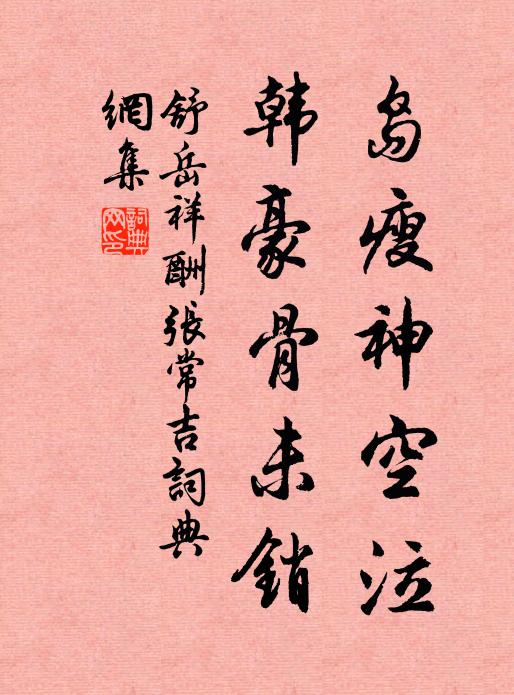 島瘦神空泣
韩豪骨未銷
舒岳祥酬張常吉詞典
網集
詞典網印